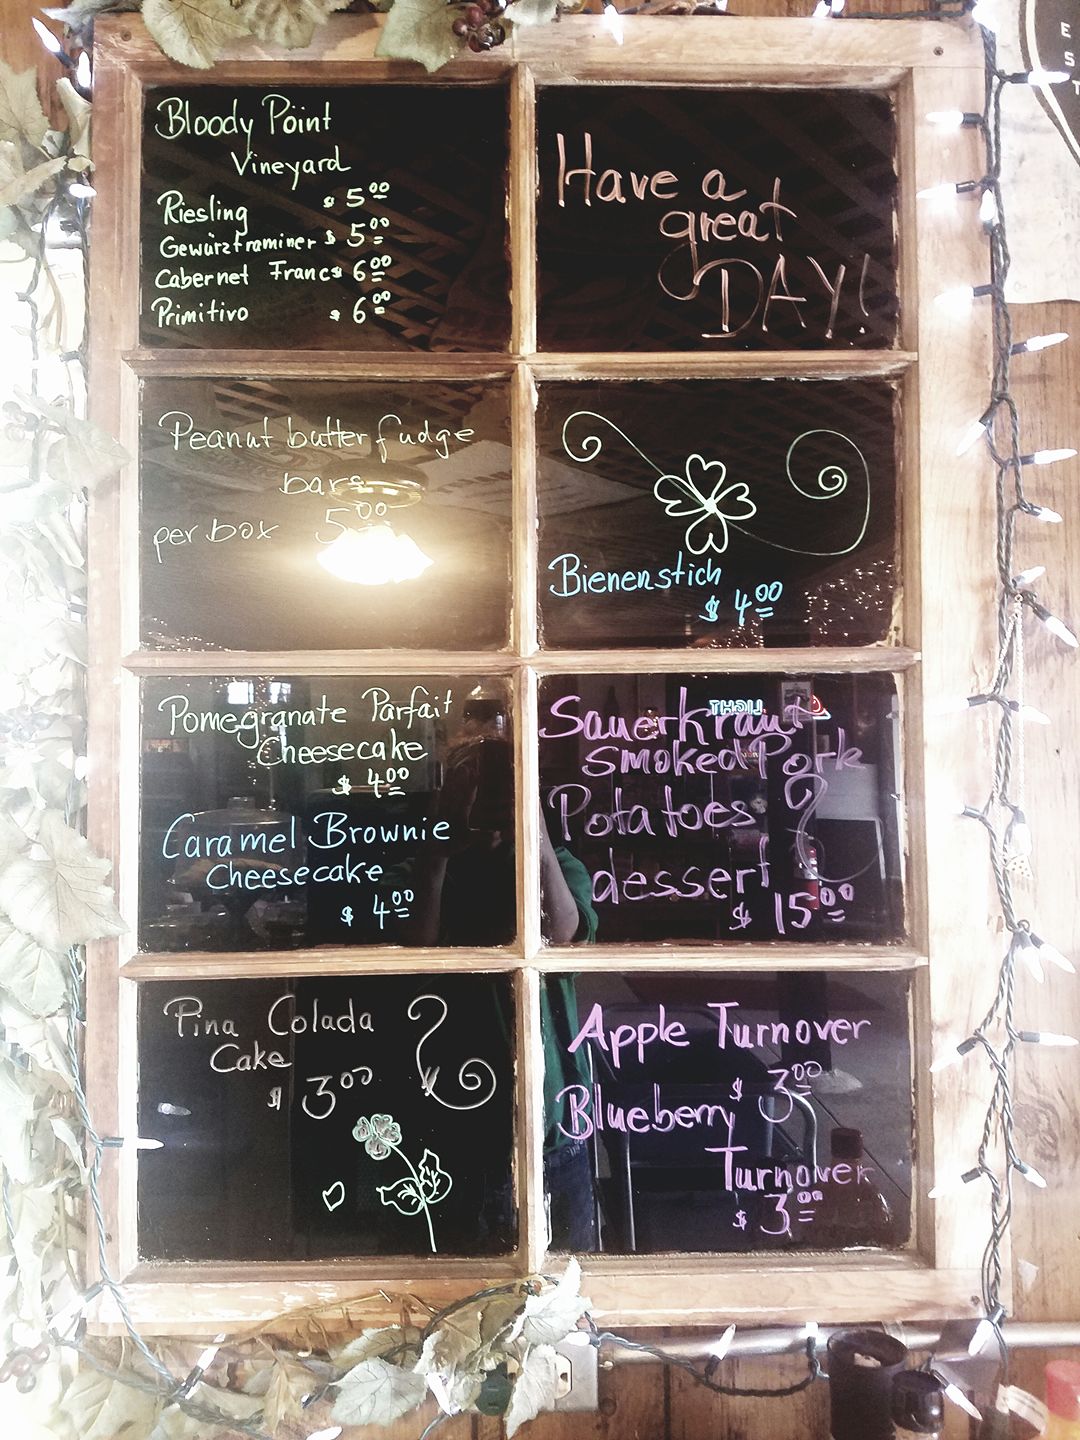 Bloody Point
Vineyard
Riesling $ 5.00
Gewürztraminer $ 5.00
Cabernet Franc $ 6.00
Primitivo $ 6.00
Have a
great
DAY!
Peanut butter fudge
bars
per box 5.00
Bienenstich
$ 4.00
Pomegranate Parfait
Cheesecake
$ 4.00
Caramel Brownie
Cheesecake
$ 4.00
Sauerkraut
Smoked Pork
Potatoes
dessert
$ 15.00
Pina Colada
Cake
$ 3.00
Apple Turnover
$ 3.00
Blueberry
Turnover
$ 3.00